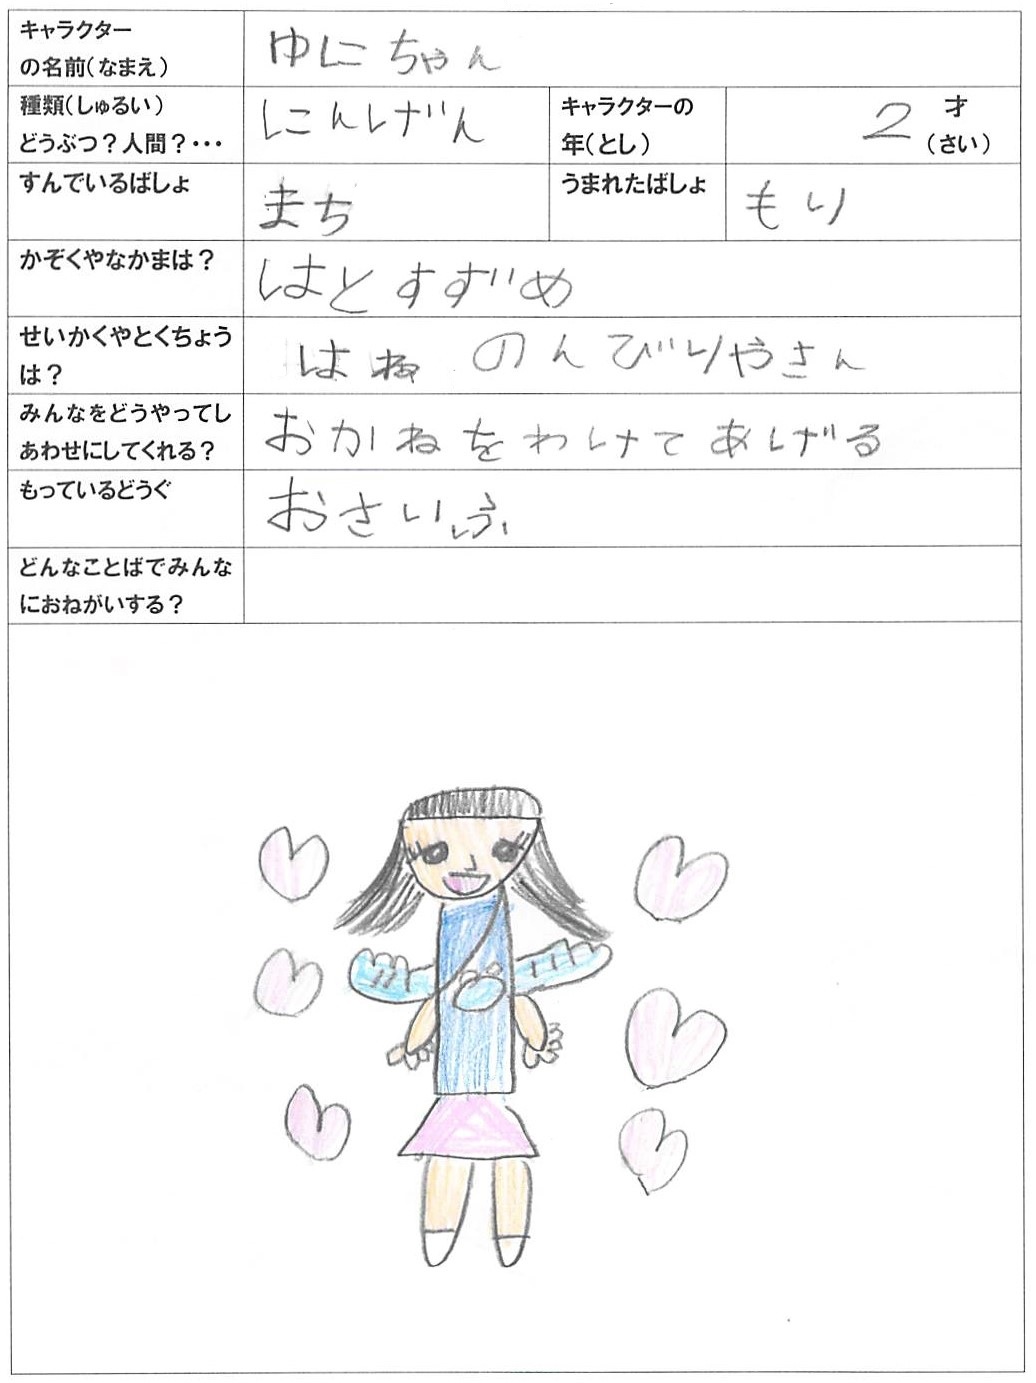 キャラクター
の名前(なまえ)
ゆにちゃん
種類(しゅるい)
どうぶつ?人間?・・・
にんげん
キャラクターの
年(とし)
2
才
(さい)
すんでいるばしょ
まち
うまれたばしょ
もり
かぞくやなかまは?
はとすずめ
せいかくやとくちょう
は?
はね のんびりやさん
みんなをどうやってし
あわせにしてくれる?
おかねをわけてあげる
もっているどうぐ
おさいふ
どんなことばでみんな
におねがいする?